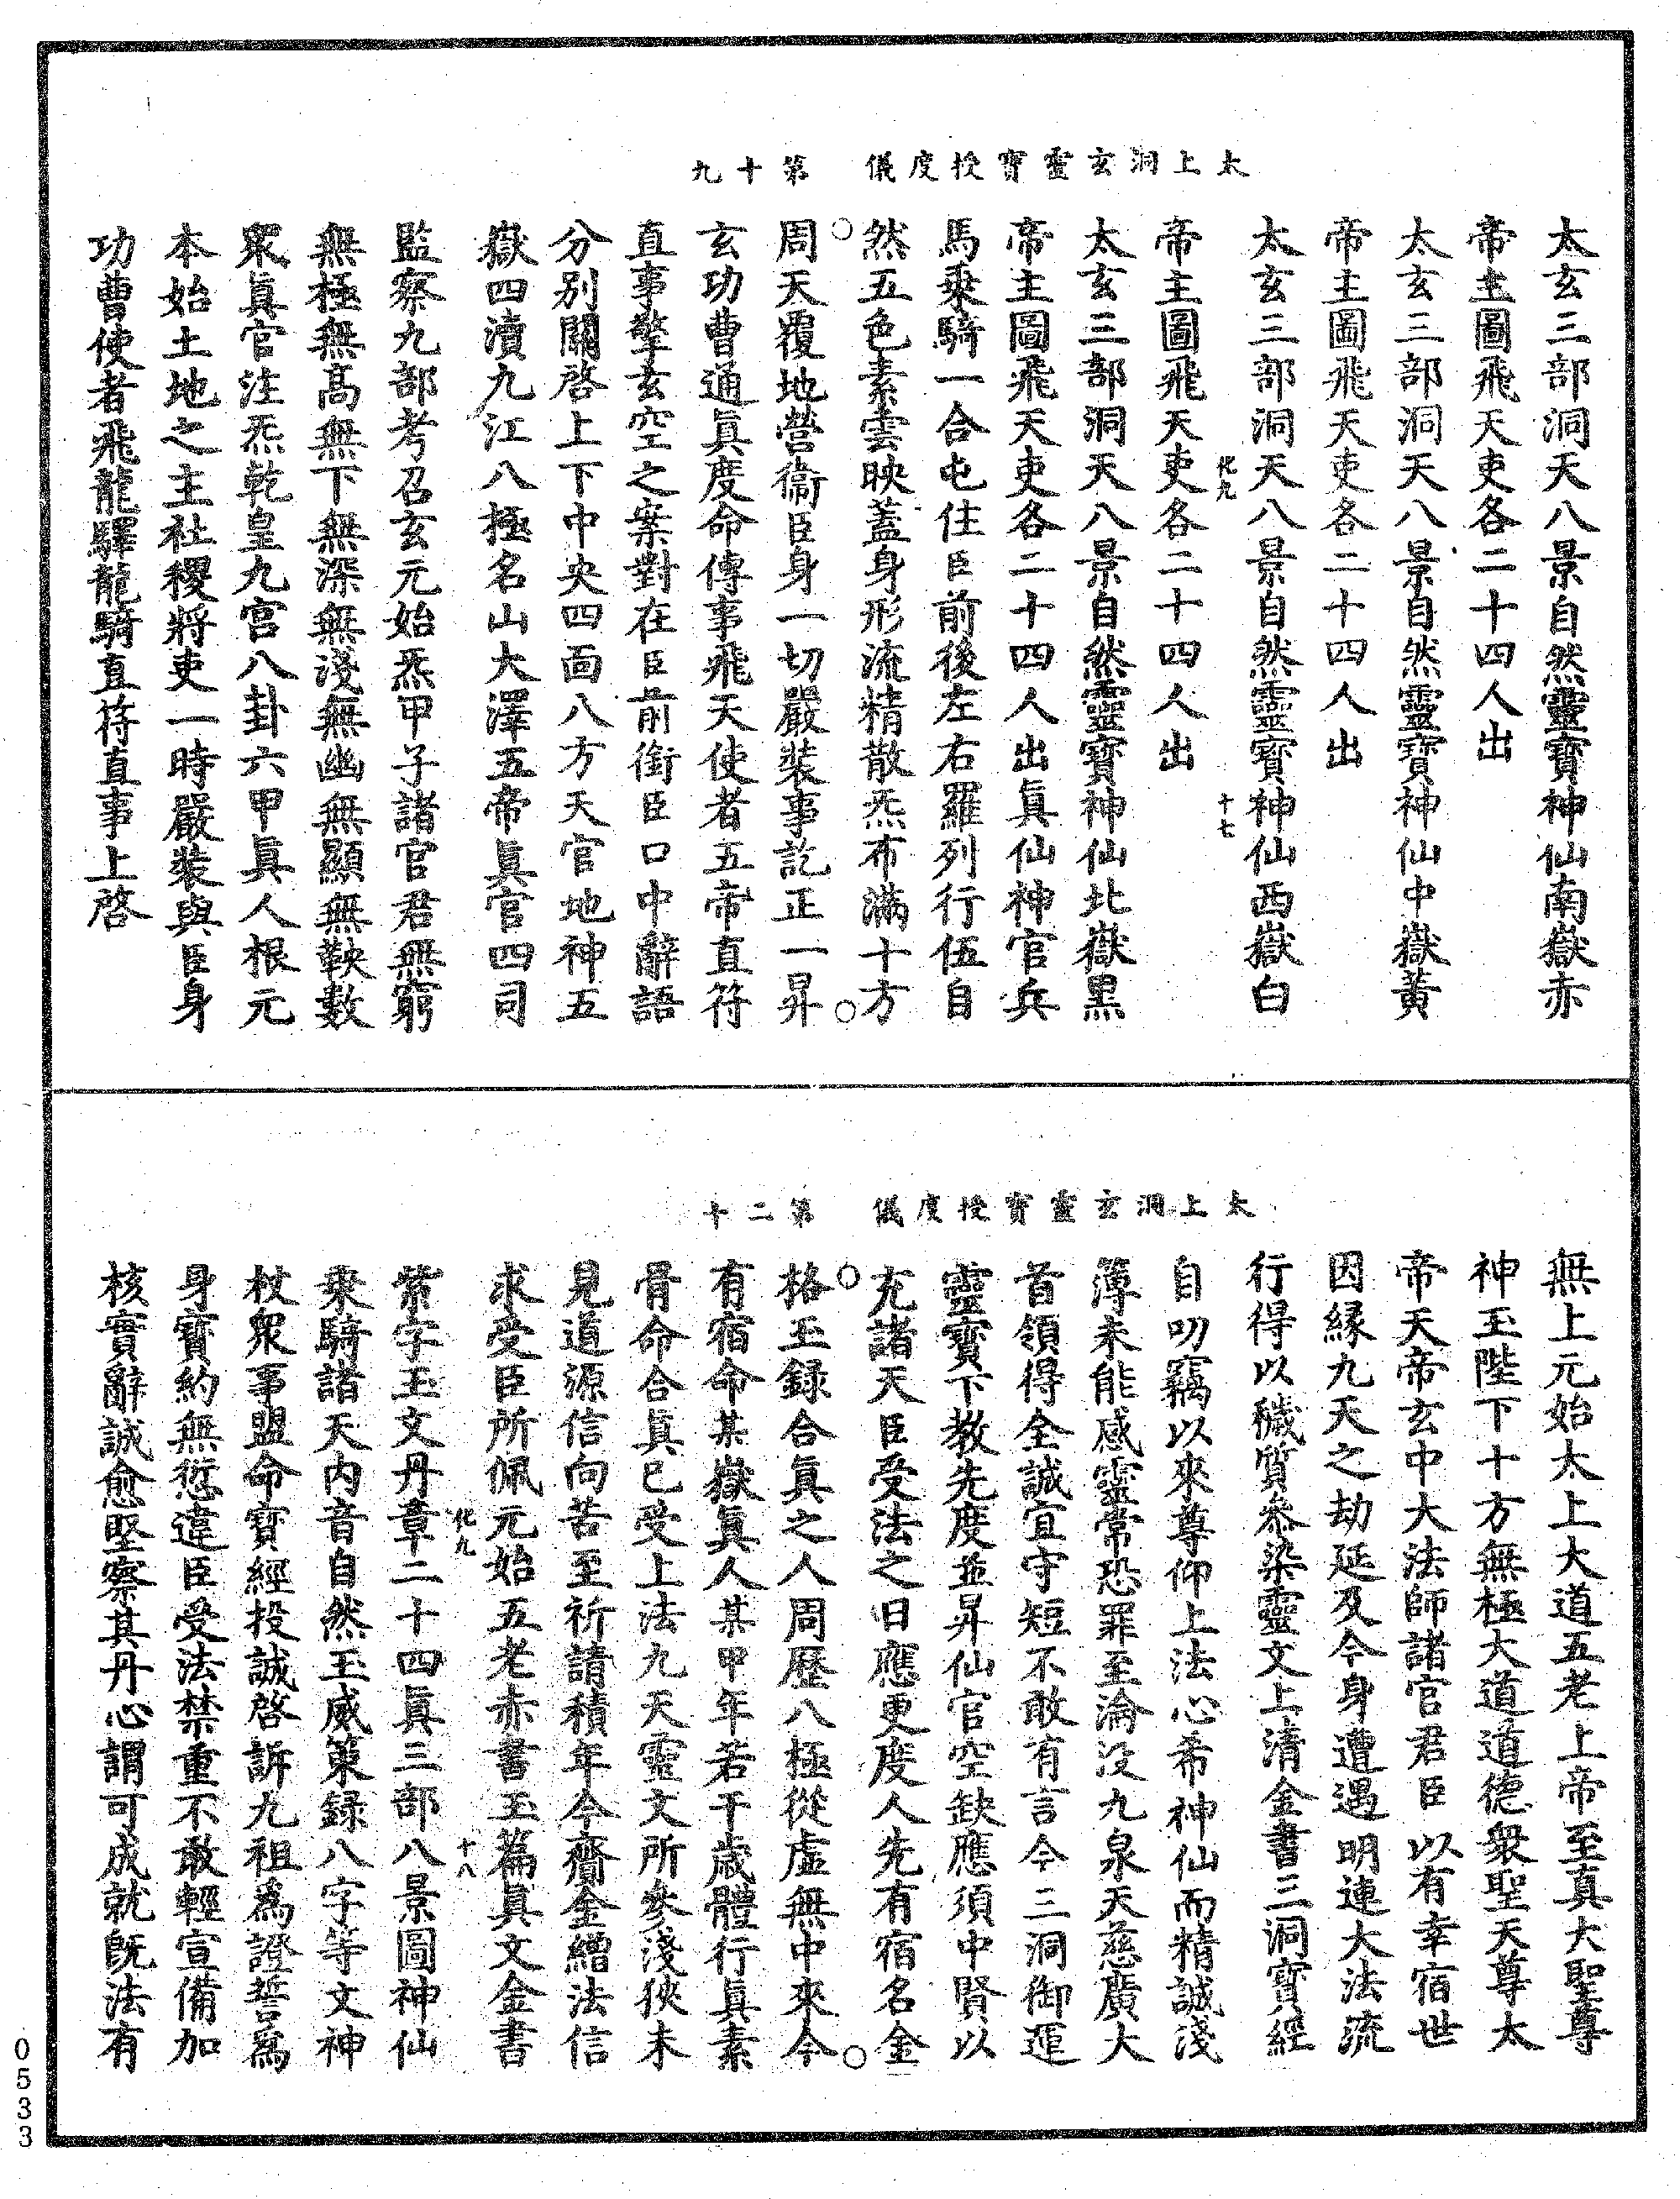 太上洞玄靈寶授度儀　第十九
太玄三部洞天八景自然靈寶神仙南嶽赤
帝主圖飛天吏各二十四人出
太玄三部洞天八景自然靈寶神仙中嶽黃
帝主圖飛天吏各二十四人出
太玄三部洞天八景自然靈寶神仙西嶽白
化九　十七
帝主圖飛天吏各二十四人出
太玄三部洞天八景自然靈寶神仙北嶽黑
帝主圖飛天吏各二十四人出真仙神官兵
馬乘騎一合屯住臣前後左右羅列行伍自
然五色素雲映蓋身形流精散炁布滿十方
周天覆地營衞臣身一切嚴裝事訖正一昇
玄功曹通眞度命傳事飛天使者五帝直符
直事擎玄空之案對在臣前銜臣口中辭語
分別關啓上下中央四面八方天官地神五
嶽四瀆九江八極名山大澤五帝眞官四司
監察九部考召玄元始炁甲子諸官君無窮
無極無高無下無深無淺無幽無顯無鞅數
眾眞官注炁乾皇九宮八卦六甲眞人根元
本始土地之主社稷將吏一時嚴裝與臣身
功曹使者飛龍驛龍騎直符直事上啓
太上洞玄靈寶授度儀　第二十
無上元始太上大道五老上帝至真大聖尊
神玉陛下十方無極大道道德衆聖天尊太
帝天帝玄中大法師諸官君臣以有幸宿世
因緣九天之劫延及今身遭遇明運大法流
行得以穢質參染靈文上清金書三洞寶經
自叨竊以來尊仰上法心希神仙而精誠淺
薄未能感靈常恐罪至淪没九泉天慈廣大
首領得全誠宜守短不敢有言今三洞御運
靈寶下教先度並昇仙官空缺應須中賢以
充諸天臣受法之日應更度人先有宿名金
格玉録合眞之人周歷八極從虛無中來今
有宿命某嶽眞人某甲年若干歲體行眞素
骨命合眞已受上法九天靈文所參淺狹未
見道源信向苦至祈請積年今齎金繒法信
求受臣所佩元始五老赤書玉篇眞文金書
化九　十八
紫字玉文丹章二十四眞三部八景圖神仙
乘騎諸天内音自然玉威策録八字等文神
杖衆事盟命寶經投誠啓訴九祖爲證誓爲
身寶約無愆違臣受法禁重不敢輕宣備加
核實辭誠愈堅察其丹心謂可成就旣法有
0533